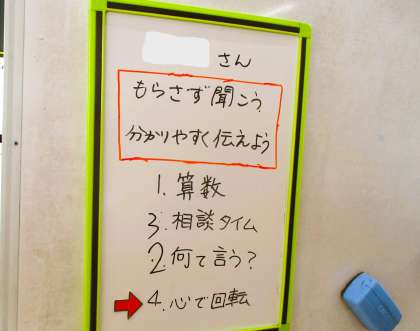 さん
もらさず聞こう
分かりやすく伝えよう
1. 算数
3. 相談タイム
2. 何て言う?
4. 心で回転